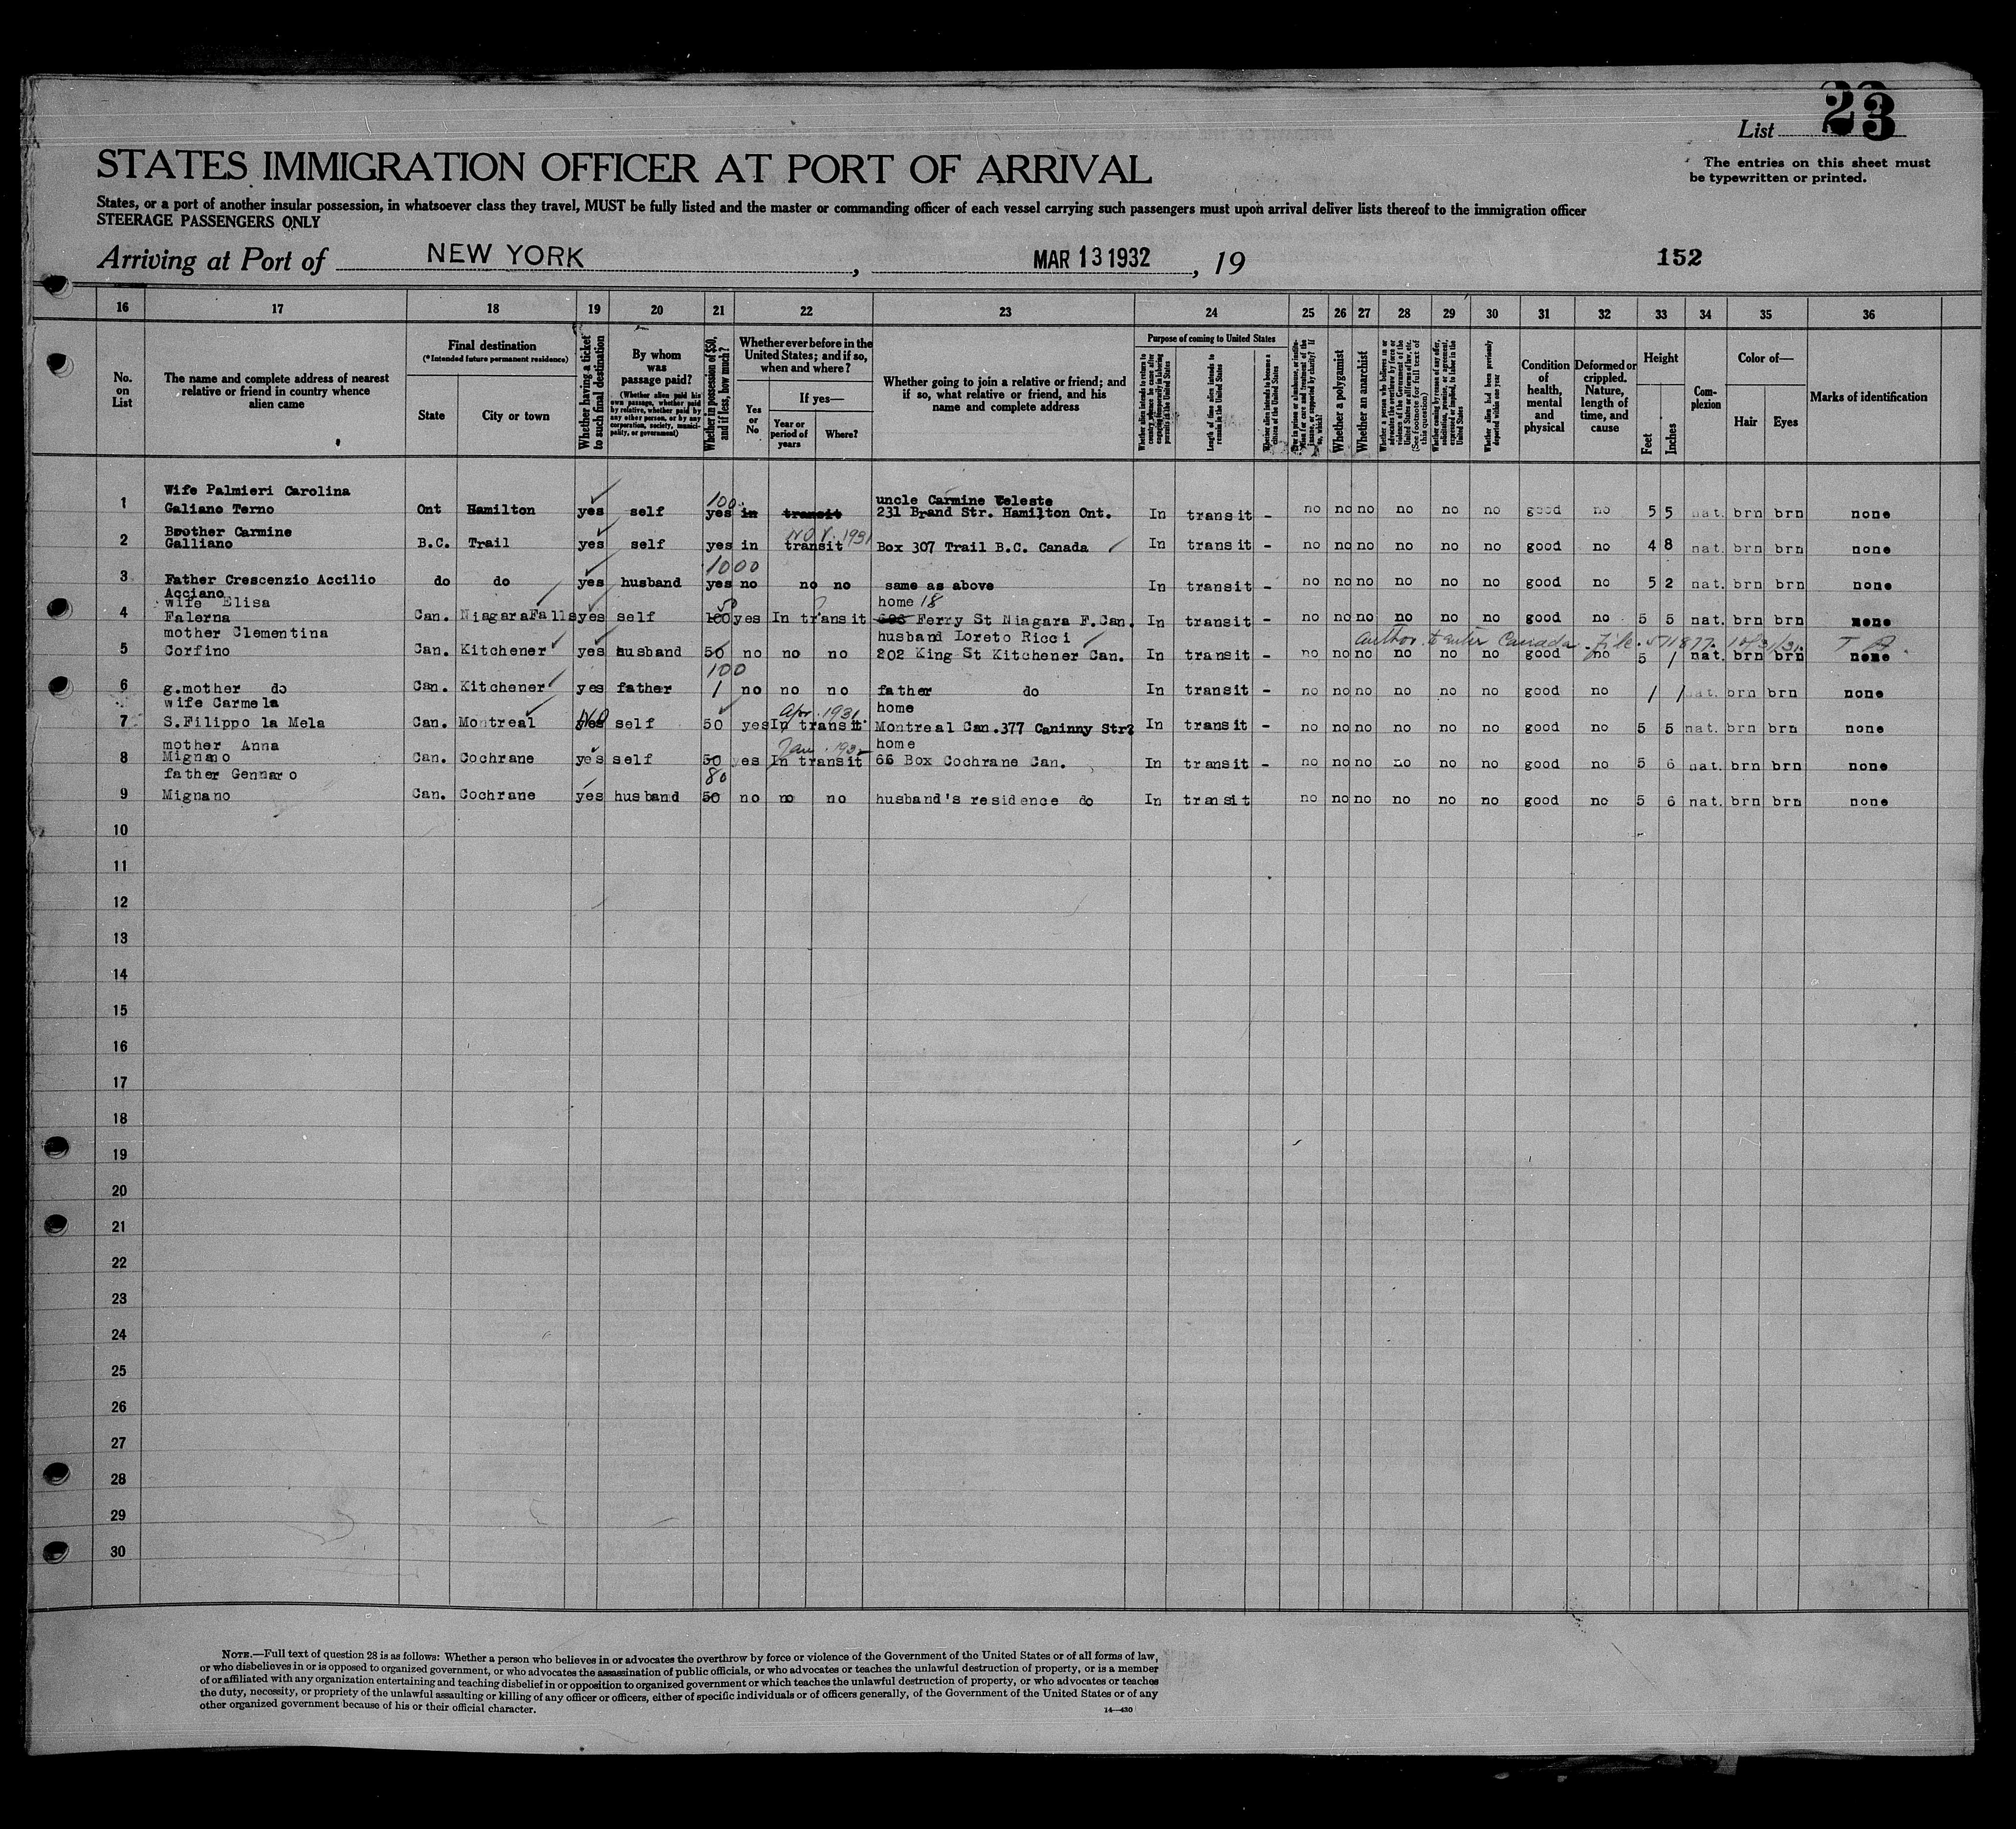 List 23
The entries on this sheet must
be typewritten or printed.
STATES IMMIGRATION OFFICER AT PORT OF ARRIVAL
States, or a port of another insular possession, in whatsoever class they travel, MUST be fully listed and the master or commanding officer of each vessel carrying such passengers must upon arrival deliver lists thereof to the immigration officer
STEERAGE PASSENGERS ONLY
Arriving at Port of NEW YORK, MAR 13 1932, 19 152
16 17 18 19 20 21 22 23 24 25 26 27 28 29 30 31 32 33 34 35 36
No. on List
The name and complete address of nearest relative or friend in country whence alien came
Final destination (*Intended future permanent residence)
State
City or town
Whether having a ticket to such final destination
By whom was passage paid?
(Whether alien paid his own passage, whether paid by relative, whether paid by any other person, or by any corporation, society, municipality, or government)
Whether in possession of $50, and if less, how much?
Whether ever before in the United States; and if so, when and where?
Yes or No
If yes—
Year or period of years
Where?
Whether going to join a relative or friend; and if so, what relative or friend, and his name and complete address
Purpose of coming to United States
Length of time alien intends to remain in the United States
Whether alien intends to become a citizen of the United States
Whether a polygamist
Whether an anarchist
Whether alien had been previously deported within one year
Condition of health, mental and physical
Deformed or crippled. Nature, length of time, and cause
Height
Feet
Inches
Complexion
Color of—
Hair
Eyes
Marks of identification
Wife Palmieri Carolina 100 uncle Carmine Celeste
1 Galiano Terno Ont Hamilton yes self yes in transit 231 Brand Str. Hamilton Ont. In transit - no no no no no no good no 5 5 nat. brn brn none
Brother Carmine NOV. 1931
2 Galliano B.C. Trail yes self yes in transit Box 307 Trail B.C. Canada In transit - no no no no no no good no 4 8 nat. brn brn none
1000
3 Father Crescenzio Accilio do do yes husband yes no no no same as above In transit - no no no no no no good no 5 2 nat. brn brn none
Acciano
wife Elisa 50 home 18
4 Falerna Can. Niagara Falls yes self 100 yes In transit Ferry St Niagara F. Can. In transit - no no no no no no good no 5 5 nat. brn brn none
mother Clementina husband Loreto Ricci author. to enter Canada. File. 571877. 10/31/31. T A.
5 Corfino Can. Kitchener yes husband 50 no no no 202 King St Kitchener Can. In transit - no no no no no no good no 5 1 nat. brn brn none
100
6 g.mother do Can. Kitchener yes father 1 no no no father do In transit - no no no no no no good no / / nat. brn brn none
wife Carmela No Apr. 1931 home
7 S.Filippo la Mela Can. Montreal yes self 50 yes In transit Montreal Can.377 Caninny Str? In transit - no no no no no no good no 5 5 nat. brn brn none
mother Anna Jan. home
8 Mignano Can. Cochrane yes self 50 yes In transit 66 Box Cochrane Can. In transit - no no no no no no good no 5 6 nat. brn brn none
father Gennaro 80
9 Mignano Can. Cochrane yes husband 50 no no no husband's residence do In transit no no no no no no good no 5 6 nat. brn brn none
10
11
12
13
14
15
16
17
18
19
20
21
22
23
24
25
26
27
28
29
30
NOTE.—Full text of question 28 is as follows: Whether a person who believes in or advocates the overthrow by force or violence of the Government of the United States or of all forms of law,
or who disbelieves in or is opposed to organized government, or who advocates the assassination of public officials, or who advocates or teaches the unlawful destruction of property, or is a member
of or affiliated with any organization entertaining and teaching disbelief in or opposition to organized government or which teaches the unlawful destruction of property, or who advocates or teaches
the duty, necessity, or propriety of the unlawful assaulting or killing of any officer or officers, either of specific individuals or of officers generally, of the Government of the United States or of any
other organized government because of his or their official character.
14—430